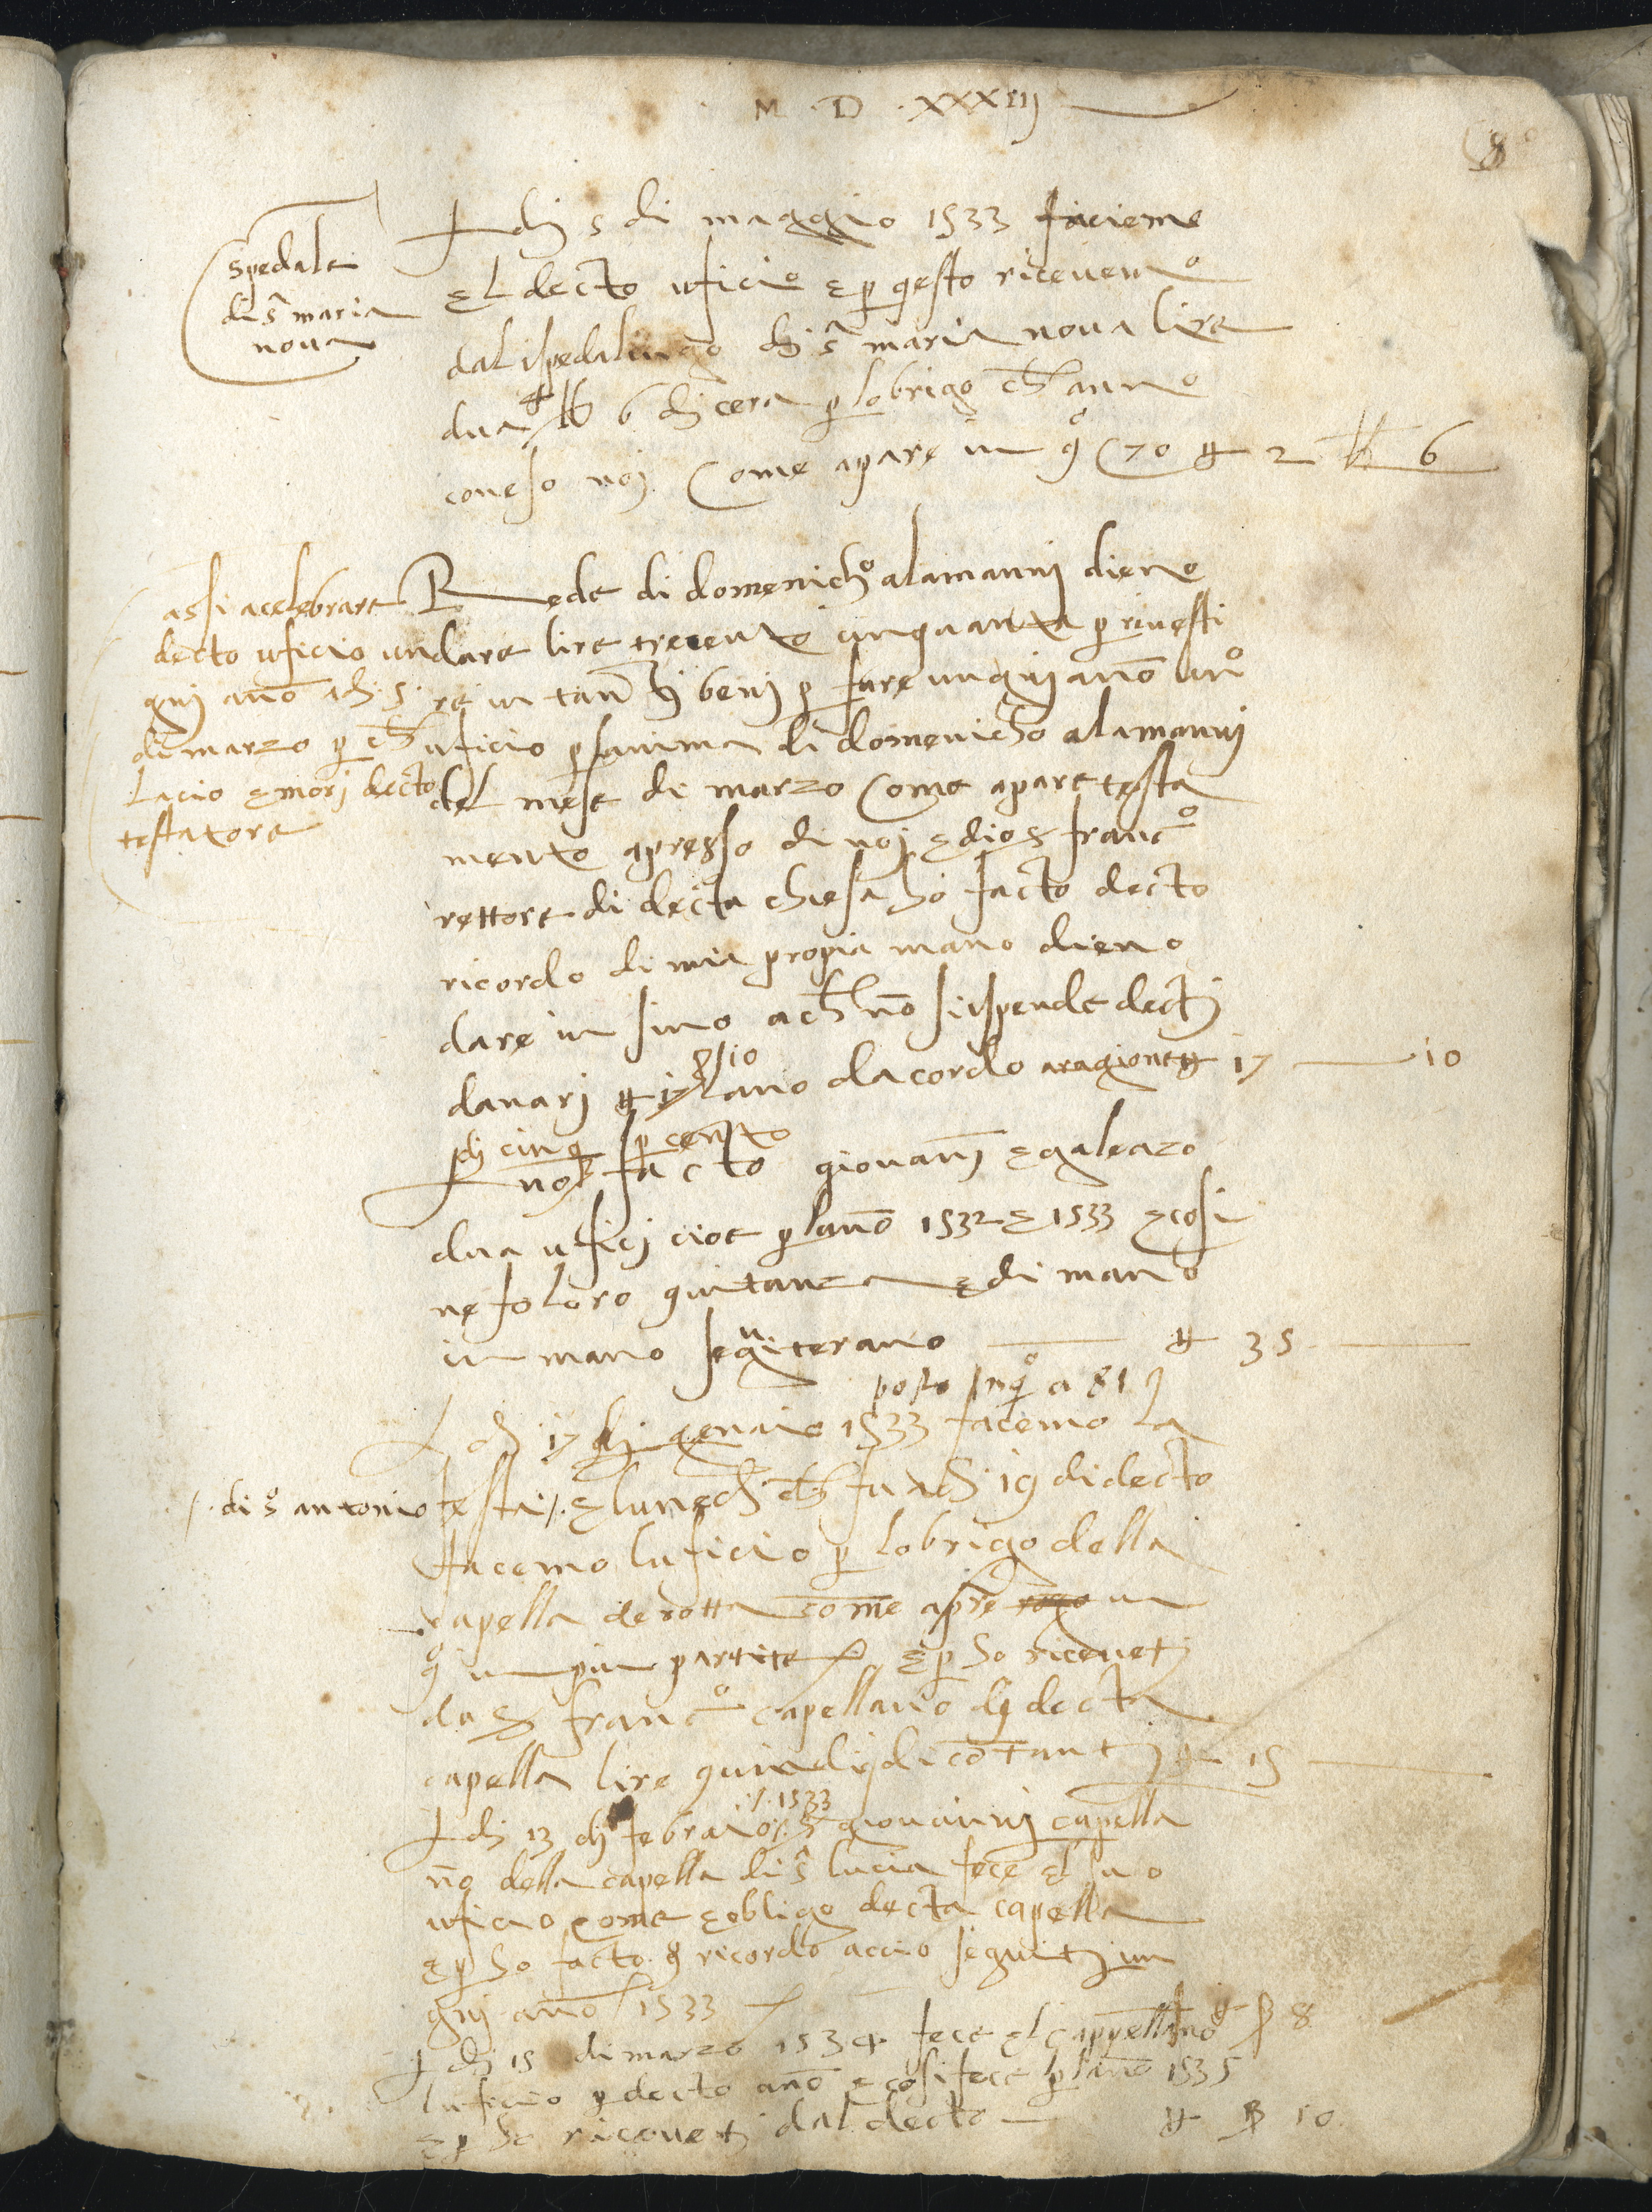 M · D · XXXIIJ
8
spedale
di s maria
nova
Adj 5 di maggio 1533 facieme
El decto uficio e p questo ricevemo
dal spedalingo dj s maria nova lire
dua # lb 6 dj cera p lobrigo ch anno
coneso noj. Come apare in q° C 70 # 2 lb 6
assi acelebrare
decto uficio un
gnj ano adj 5
di marzo p ch
lacio e mori decto
testatore
Rede di domenich° alamannj dieno
dare lire trecento cinquanta p rinvesti
re in tantj benj p fare ungnj ano un°
uficio p lanima di domenicho alamannj
del mese di marzo Come apare testa
mento apresso di noj E dio s franc°
rettore di decta chiesa ho facto decto
ricordo di mia propia mano dieno
dare in sino ach no si spende dectj
danarj # 17 s 10 lano dacordo aragione # 17 — 10
dj cinq p cento
Anno facto giovanj E galeazo
dua uficj cioe p lano 1532 E 1533 E cosi
ne fo loro quitanza E di mano
in mano seguiterano — # 35 —
posto in q° a 81
Adj 17 dj genaio 1533 facemo la
/· di s° antonio
festa /· E lunedj ch fu adj 19 di decto
facemo luficio p lobrigo della
capella de rotta come apre in
q° in piu partite E p ho ricevutj
da s franc° capellano dj decta
capella lire quindicj di contantj # 15 —
·/· 1533
Adj 13 dj febraio /· s giovannj capella
no della capella di s lucia fece El suo
uficio come E obligo decta capella
E p ho facto q ricordo accio seguitj un
gnj ano 1533
Adj 15 di marzo 1534 fece El cappellano # ß 8
luficio p decto ano E cosi fece p lano 1535
E p ho ricevutj dal decto — # ß 10